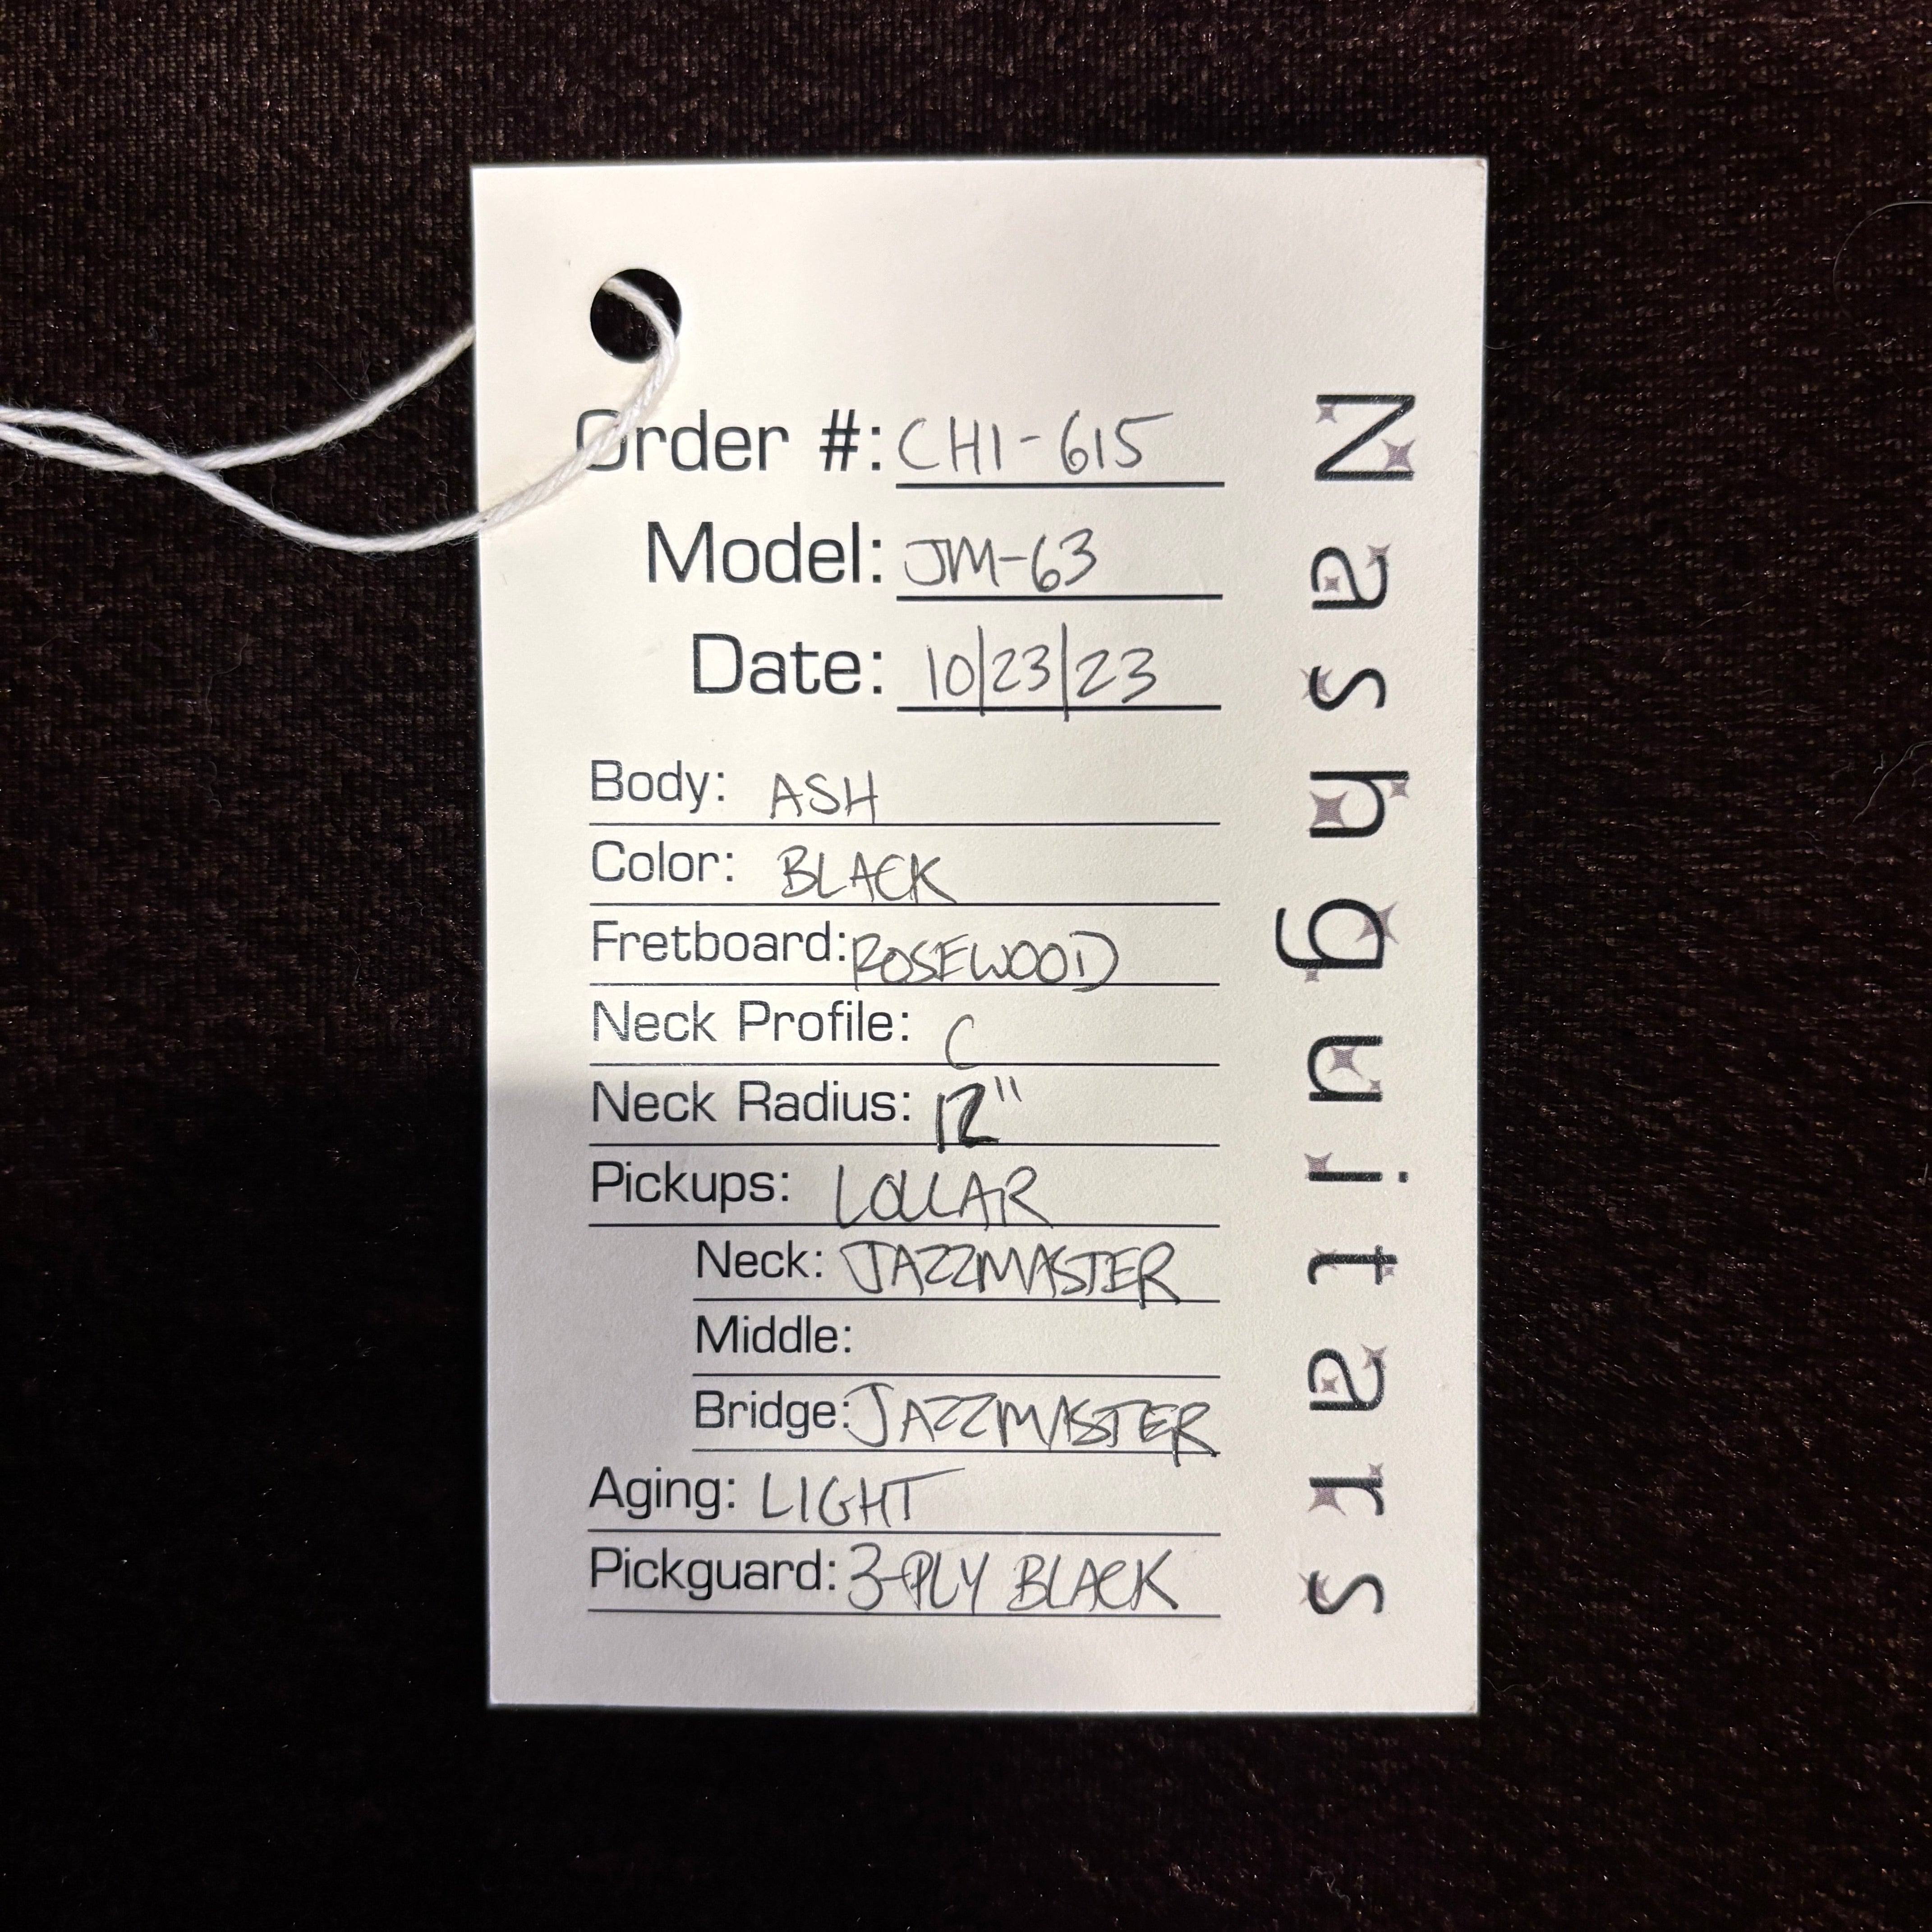 Order #: CHI-615
Model: JM-63
Date: 10/23/23
Body: ASH
Color: BLACK
Fretboard: ROSEWOOD
Neck Profile: C
Neck Radius: 12"
Pickups: LOLLAR
Neck: JAZZMASTER
Middle:
Bridge: JAZZMASTER
Aging: LIGHT
Pickguard: 3-PLY BLACK
Nashguitars